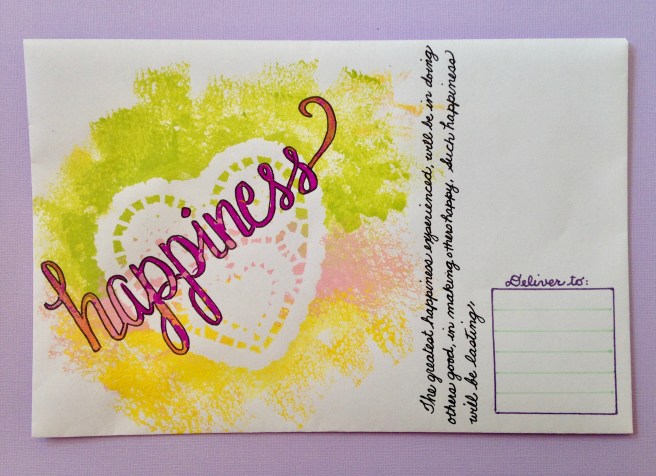 happiness
The greatest happiness experienced, will be in doing
others good, in making others happy. Such happiness
will be lasting.
Deliver to: